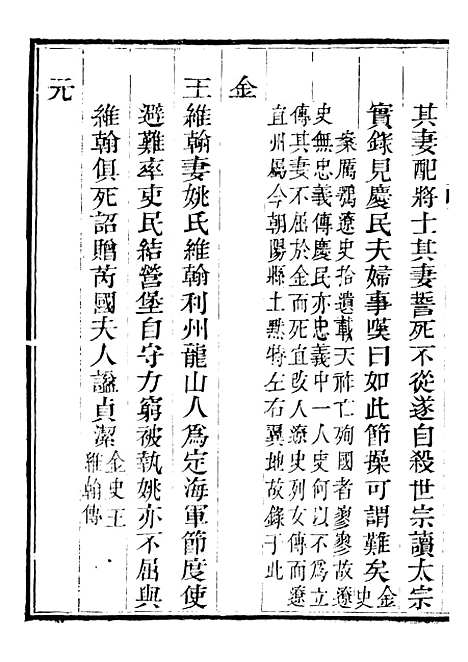 其妻配將士其妻誓死不從遂自殺世宗讀太宗
實錄見慶民夫婦事嘆曰如此節操可謂難矣金史
案厲鶚遼史拾遺載天祚亡殉國者寥寥故遼
史無忠義傳慶民亦忠義中一人史何以不為立
傳其妻不屈於金而死宜改入遼史列女傳而遼
宜州屬今朝陽縣土默特左右翼地故錄于此
金
王維翰妻姚氏維翰利州龍山人為定海軍節度使
避難率吏民結營堡自守力窮被執姚亦不屈與
維翰俱死詔贈芮國夫人諡貞潔金史王
維翰傳
元